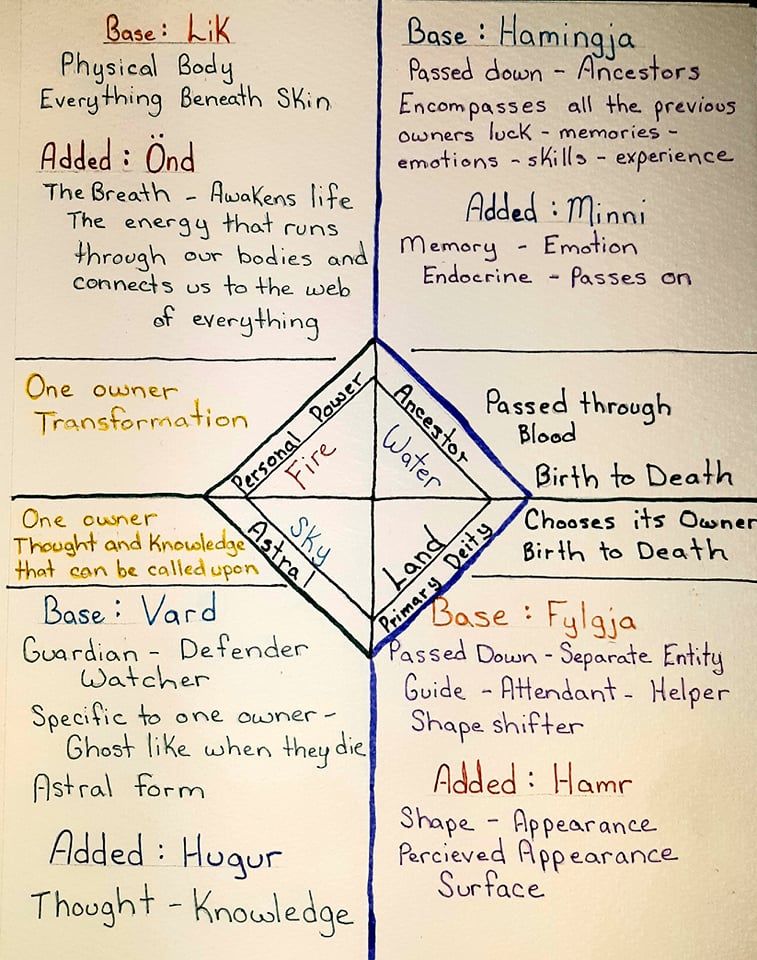 Base: Lik
Physical Body
Everything Beneath Skin
Added: Önd
The Breath - Awakens life
The energy that runs
through our bodies and
connects us to the web
of everything
Base: Hamingja
Passed down - Ancestors
Encompasses all the previous
owners luck - memories -
emotions - skills - experience
Added: Minni
Memory - Emotion
Endocrine - Passes on
One owner
Transformation
Personal Power
Fire
Ancestor
Water
Passed through
Blood
Birth to Death
One owner
Thought and Knowledge
that can be called upon
Astral
Sky
Land
Primary Deity
Chooses its Owner
Birth to Death
Base: Vard
Guardian - Defender
Watcher
Specific to one owner -
Ghost like when they die
Astral form
Added: Hugur
Thought - Knowledge
Base: Fylgja
Passed Down - Separate Entity
Guide - Attendant - Helper
Shape shifter
Added: Hamr
Shape - Appearance
Percieved Appearance
Surface